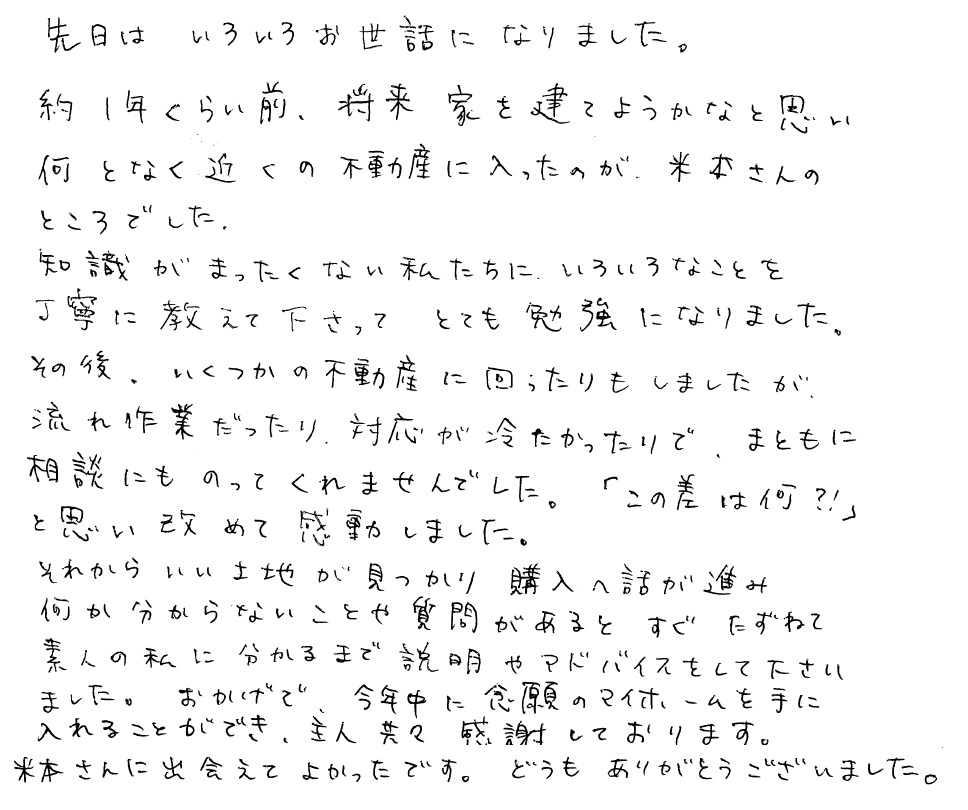 先日は いろいろお世話になりました。
約1年くらい前、将来 家を建てようかなと思い
何となく近くの不動産に入ったのが、米本さんの
ところでした。
知識がまったくない私たちに、いろいろなことを
丁寧に教えて下さって とても勉強になりました。
その後、いくつかの不動産に回ったりもしましたが、
流れ作業だったり、対応が冷たかったりで、まともに
相談にものってくれませんでした。「この差は何?!」
と思い改めて感動しました。
それからいい土地が見つかり 購入へ話が進み
何か分からないことや質問があると すぐ たずねて
素人の私に分かるまで説明やアドバイスをして下さい
ました。おかげで、今年中に念願のマイホームを手に
入れることができ、主人共々 感謝しております。
米本さんに出会えてよかったです。どうもありがとうございました。